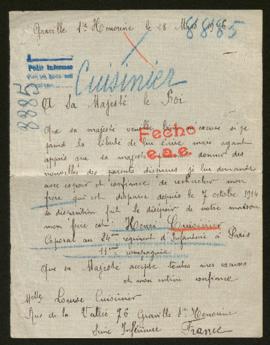 Graville Ste Honorine le 28 Mars 1916
8885
Cuisinier
8885
A Sa Majesté le Roi
Que sa majesté veuille bien excuser si je
prend la liberté de lui écrire mais ayant
appris que sa majesté donner des
nouvelles des parents disparus je lui demande
avec espoir et confiance de rechercher mon
frère qui est disparu depuis le 7 octobre 1914
sa disparition fait le désespoir de notre maison
mon frère est: Henri Cuisinier
Caporal au 24me régiment d'Infanterie à Paris
11me compagnie
que sa Majesté accepte toutes mes excuses
et mon entière confiance
Melle Louise Cuisinier
Rue de la Vallée 76 Graville Ste Honorine
Seine Inférieure France
Fecho
e.a.e.